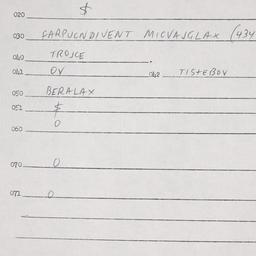 020 $
030 CARPJCNDIVENT MICVAJGLAX (434
040 TROJCE
041 OV 042 TISTEBOV
050 BERALAX
051 $
0
060
070 0
071 0